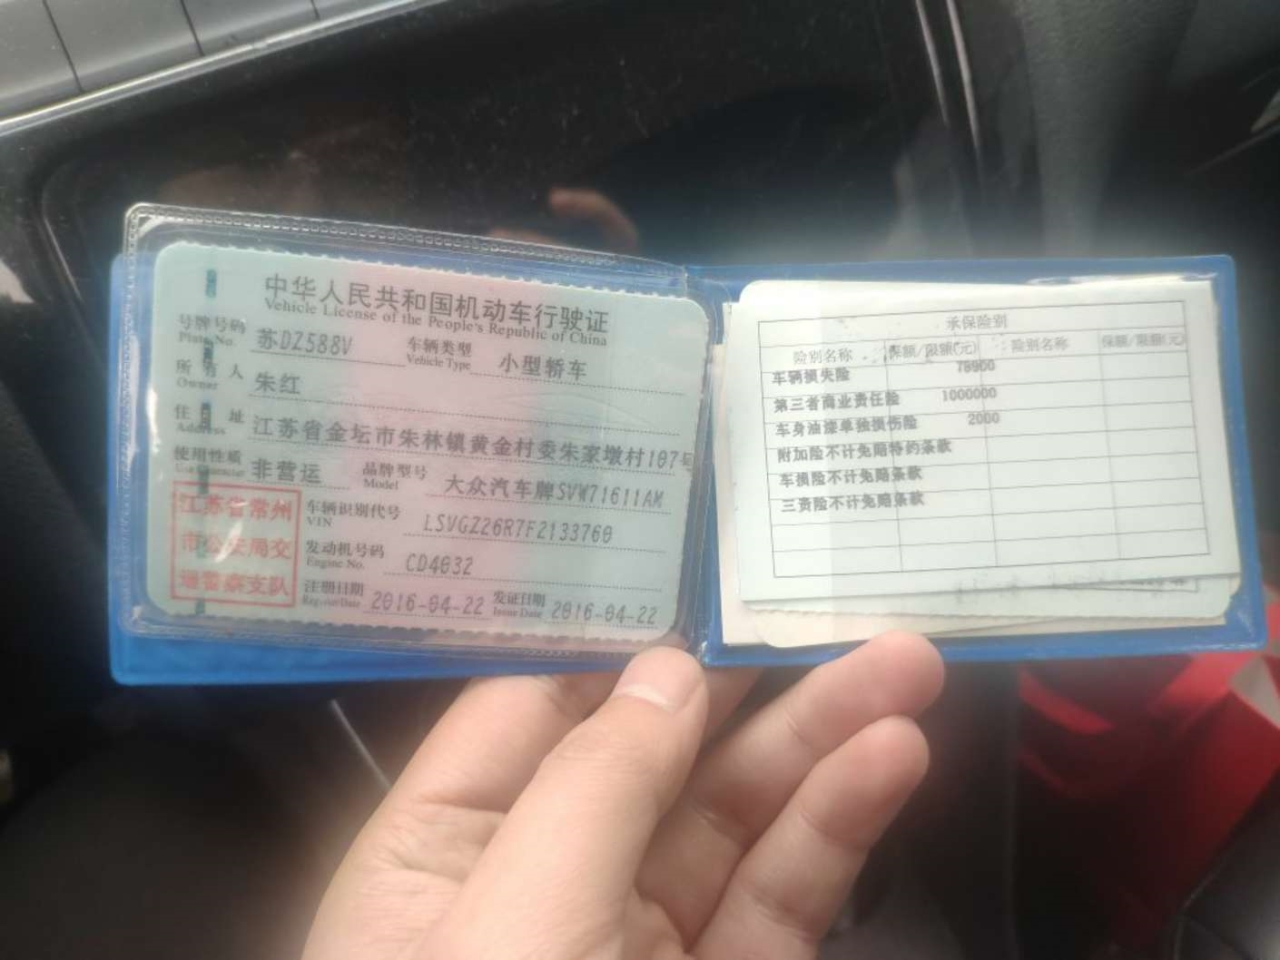 中华人民共和国机动车行驶证
Vehicle License of the People's Republic of China
号牌号码 苏DZ588V 车辆类型 小型轿车
Plate No. Vehicle Type
所有人 朱红
Owner
住址 江苏省金坛市朱林镇黄金村委朱家墩村107号
Address
使用性质 非营运 品牌型号 大众汽车牌SVW71611AM
Use Character Model
江苏省常州
市公安局交
通警察支队
车辆识别代号 LSVGZ26R7F2133760
VIN
发动机号码 CD4032
Engine No.
注册日期 2016-04-22 发证日期 2016-04-22
Register Date Issue Date
承保险别
险别名称 保额/限额(元) 险别名称 保额/限额(元)
车辆损失险 78900
第三者商业责任险 1000000
车身油漆单独损伤险 2000
附加险不计免赔特约条款
车损险不计免赔条款
三责险不计免赔条款